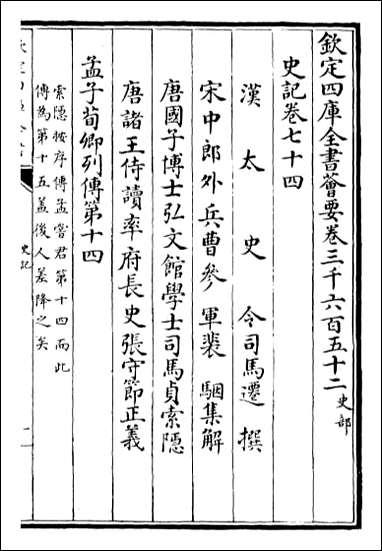 欽定四庫全書薈要卷三千六百五十二史部
史記卷七十四
漢太史令司馬遷撰
宋中郎外兵曹參軍裴駰集解
唐國子博士弘文館學士司馬貞索隱
唐諸王侍讀率府長史張守節正義
孟子荀卿列傳第十四
索隱按序傳孟嘗君第十四而此
傳為第十五蓋後人差降之矣
史記